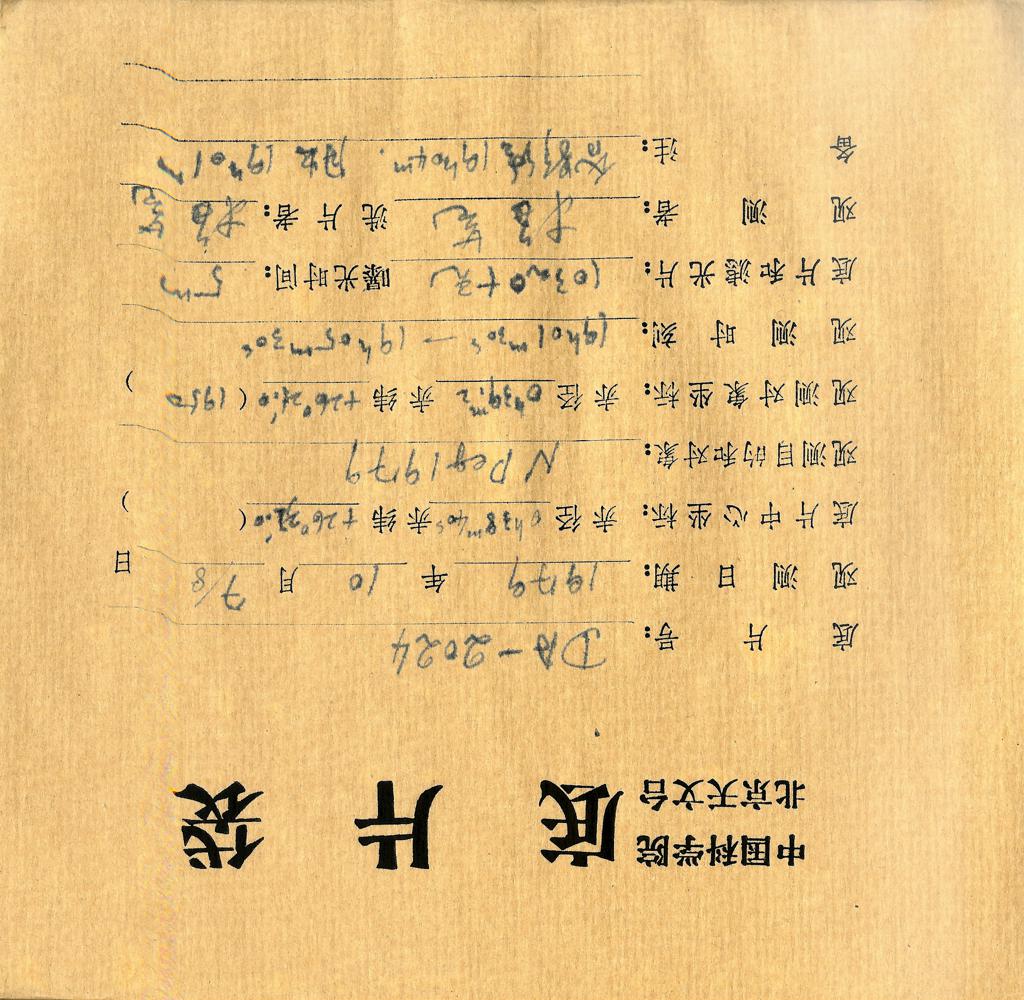 中国科学院
北京天文台 底片袋
底片号: DA-2024
观测日期: 1979年10月7/8日
底片中心坐标: 赤径 0h38m40s 赤纬 +26°21′.0 ( )
观测目的和对象: N Peg 1979
观测对象坐标: 赤径 0h39m.2 赤纬 +26°21′.0 (1950)
观测时刻: 19h01m30s — 19h05m30s
底片和滤光片: 103a.O+无 曝光时间: 5m
观测者: 洗片者:
备注: 19h04m. 19h01m